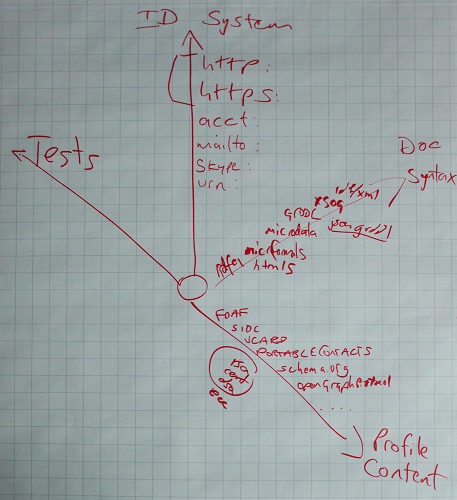 ID System
http:
https:
acct:
mailto:
Skype:
urn:
Tests
Doc
Syntax
GRDDL
microdata
microformats
html5
FOAF
SIOC
VCARD
PORTABLECONTACTS
schema.org
openGraphProtocol
....
Profile
Content